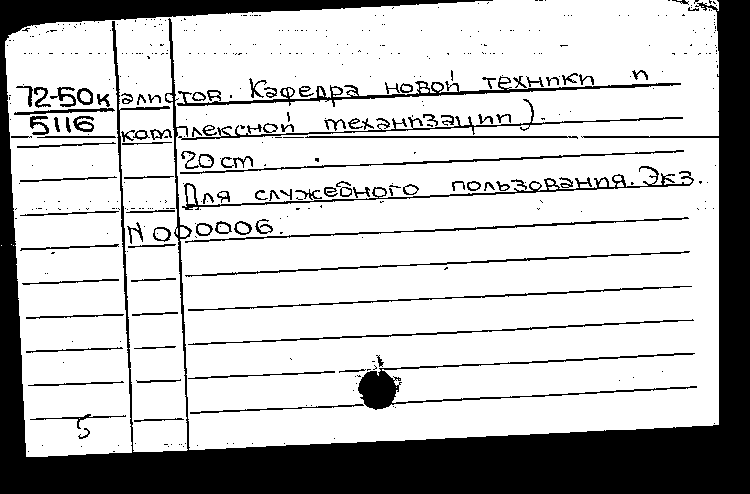 72-50к алистов. Кафедра новой техники и
5116 комплексной механизации).
20 cm.
Для служебного пользования. Экз.
N 000006.
5